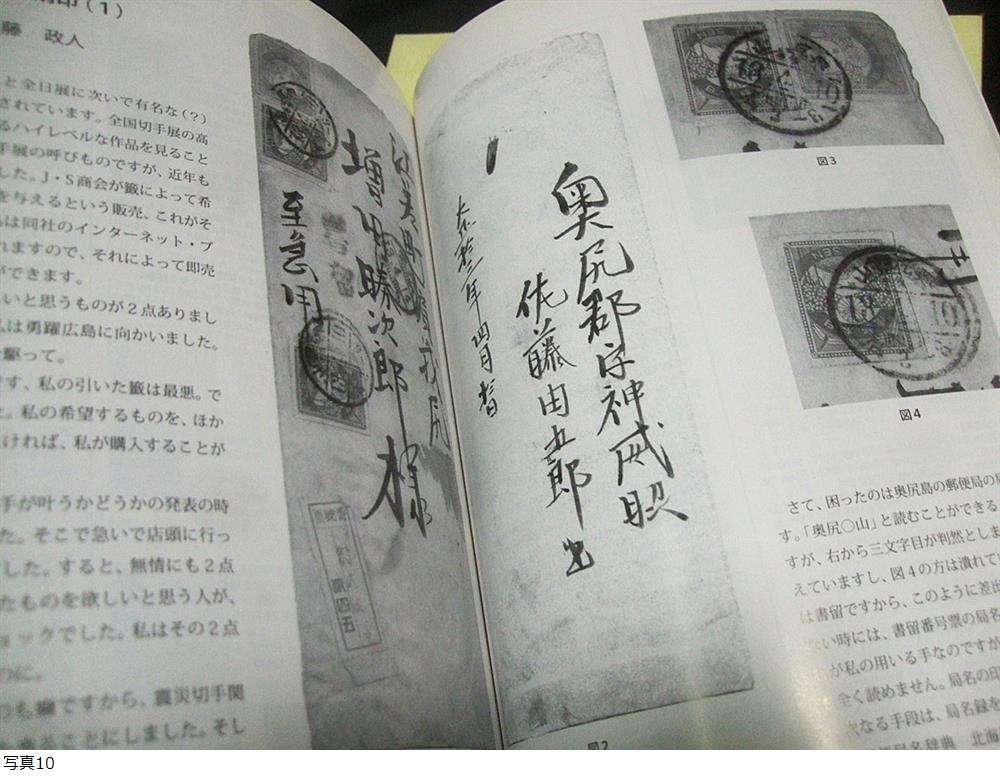 印(1)
藤 政人
と全日展に次いで有名な(?)
されています。全国切手展の高
るハイレベルな作品を見ること
手展の呼びものですが、近年も
した。J・S商会が籤によって希
を与えるという販売、これがそ
は同社のインターネット・ブ
れますので、それによって即売
ができます。
いと思うものが2点ありまし
私は勇躍広島に向かいました。
を駆って。
です、私の引いた籤は最悪。で
た。私の希望するものを、ほか
ければ、私が購入することが
手が叶うかどうかの発表の時
た。そこで急いで店頭に行っ
した。すると、無情にも2点
たものを欲しいと思う人が、
ョックでした。私はその2点
のに。
のも癪ですから、震災切手関
ることにしました。そし
増田勝次郎様
至急用
書留
第四五
奥尻郡字神威
佐藤由五郎出
図2
図3
図4
さて、困ったのは奥尻島の郵便局の局
す。「奥尻○山」と読むことができる
すが、右から三文字目が判然としま
えていますし、図4の方は潰れて
は書留ですから、このように差出
ない時には、書留番号票の局名
が私の用いる手なのですが
全く読めません。局名の印
次なる手段は、局名録を
局名辞典 北海
写真10